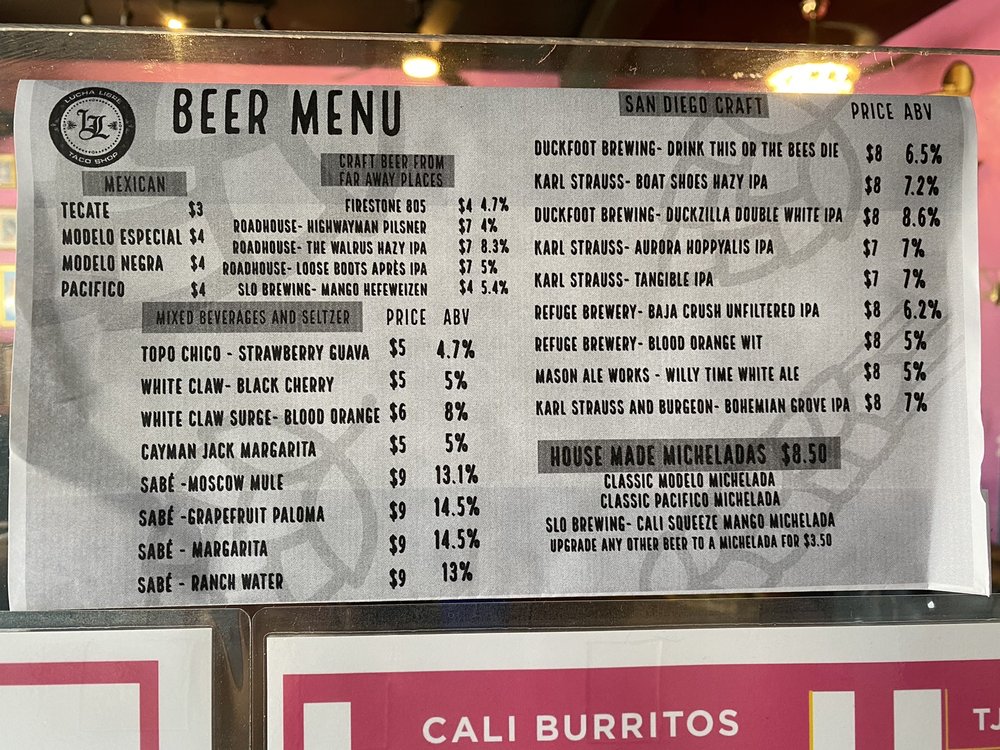 LUCHA LIBRE
LL
TACO SHOP
BEER MENU
MEXICAN
TECATE $3
MODELO ESPECIAL $4
MODELO NEGRA $4
PACIFICO $4
CRAFT BEER FROM
FAR AWAY PLACES
FIRESTONE 805 $4 4.7%
ROADHOUSE- HIGHWAYMAN PILSNER $7 4%
ROADHOUSE- THE WALRUS HAZY IPA $7 8.3%
ROADHOUSE- LOOSE BOOTS APRÈS IPA $7 5%
SLO BREWING- MANGO HEFEWEIZEN $4 5.4%
MIXED BEVERAGES AND SELTZER PRICE ABV
TOPO CHICO - STRAWBERRY GUAVA $5 4.7%
WHITE CLAW- BLACK CHERRY $5 5%
WHITE CLAW SURGE- BLOOD ORANGE $6 8%
CAYMAN JACK MARGARITA $5 5%
SABÉ -MOSCOW MULE $9 13.1%
SABÉ -GRAPEFRUIT PALOMA $9 14.5%
SABÉ - MARGARITA $9 14.5%
SABÉ - RANCH WATER $9 13%
SAN DIEGO CRAFT PRICE ABV
DUCKFOOT BREWING- DRINK THIS OR THE BEES DIE $8 6.5%
KARL STRAUSS- BOAT SHOES HAZY IPA $8 7.2%
DUCKFOOT BREWING- DUCKZILLA DOUBLE WHITE IPA $8 8.6%
KARL STRAUSS- AURORA HOPPYALIS IPA $7 7%
KARL STRAUSS- TANGIBLE IPA $7 7%
REFUGE BREWERY- BAJA CRUSH UNFILTERED IPA $8 6.2%
REFUGE BREWERY- BLOOD ORANGE WIT $8 5%
MASON ALE WORKS - WILLY TIME WHITE ALE $8 5%
KARL STRAUSS AND BURGEON- BOHEMIAN GROVE IPA $8 7%
HOUSE MADE MICHELADAS $8.50
CLASSIC MODELO MICHELADA
CLASSIC PACIFICO MICHELADA
SLO BREWING- CALI SQUEEZE MANGO MICHELADA
UPGRADE ANY OTHER BEER TO A MICHELADA FOR $3.50
CALI BURRITOS
TJ